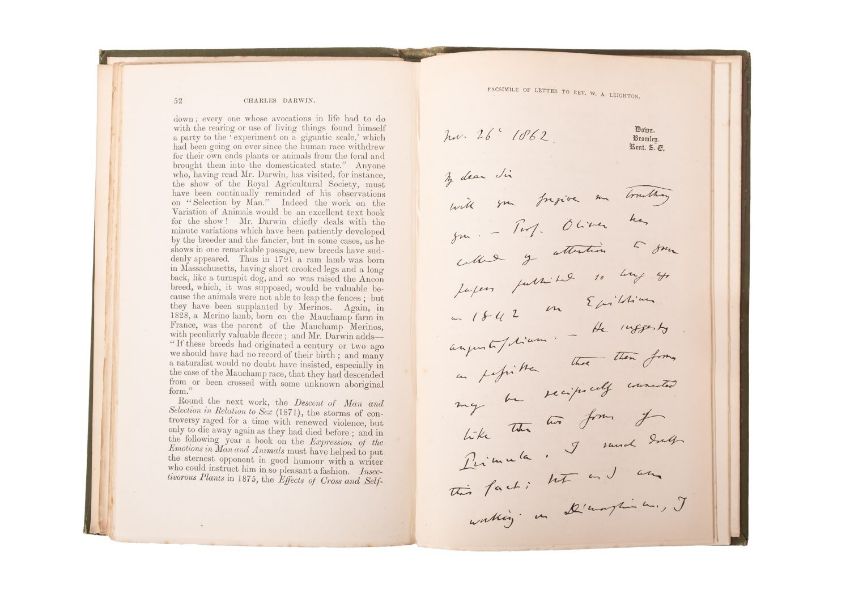 52 CHARLES DARWIN.
down; every one whose avocations in life had to do
with the rearing or use of living things found himself
a party to the ‘experiment on a gigantic scale,’ which
had been going on ever since the human race withdrew
for their own ends plants or animals from the feral and
brought them into the domesticated state.” Anyone
who, having read Mr. Darwin, has visited, for instance,
the show of the Royal Agricultural Society, must
have been continually reminded of his observations
on “Selection by Man.” Indeed the work on the
Variation of Animals would be an excellent text book
for the show! Mr. Darwin chiefly deals with the
minute variations which have been patiently developed
by the breeder and the fancier, but in some cases, as he
shows in one remarkable passage, new breeds have sud-
denly appeared. Thus in 1791 a ram lamb was born
in Massachusetts, having short crooked legs and a long
back, like a turnspit dog, and so was raised the Ancon
breed, which, it was supposed, would be valuable be-
cause the animals were not able to leap the fences; but
they have been supplanted by Merinos. Again, in
1828, a Merino lamb, born on the Mauchamp farm in
France, was the parent of the Mauchamp Merinos,
with peculiarly valuable fleece; and Mr. Darwin adds—
“If these breeds had originated a century or two ago
we should have had no record of their birth; and many
a naturalist would no doubt have insisted, especially in
the case of the Mauchamp race, that they had descended
from or been crossed with some unknown aboriginal
form.”
Round the next work, the Descent of Man and
Selection in Relation to Sex (1871), the storms of con-
troversy raged for a time with renewed violence, but
only to die away again as they had died before; and in
the following year a book on the Expression of the
Emotions in Man and Animals must have helped to put
the sternest opponent in good humour with a writer
who could instruct him in so pleasant a fashion. Insec-
tivorous Plants in 1875, the Effects of Cross and Self-
FACSIMILE OF LETTER TO REV. W. A. LEIGHTON.
Down.
Bromley.
Kent. S. E.
Nov. 26 1862.
My dear Sir
will you forgive me troubling
you. — Prof. Oliver has
called my attention to your
papers published so long ago
as 1842 on Epilobium
angustifolium. — He suggests
as possible that these forms
may be reciprocally connected
like the two forms of
Primula. I much doubt
this fact; but as I am
working on Dimorphism, I